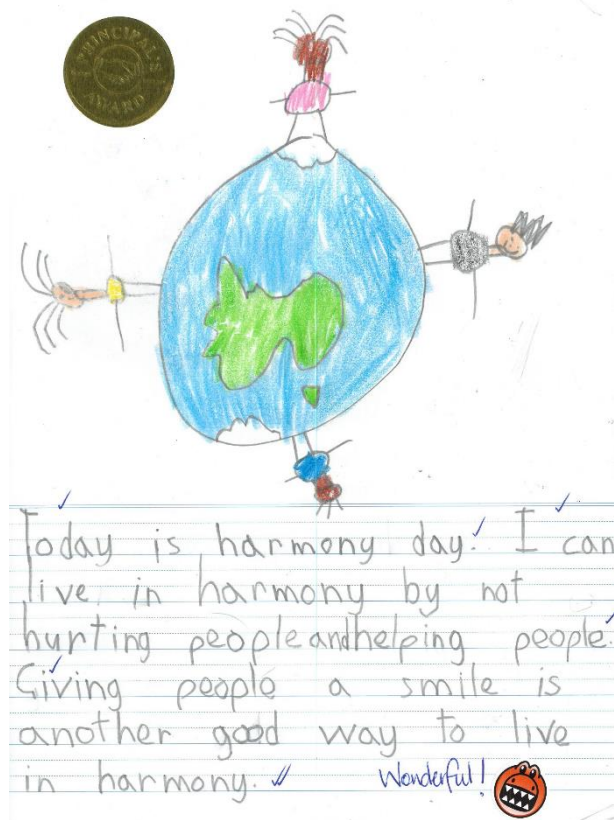 PRINCIPAL'S
AWARD
Today is harmony day. I can
live in harmony by not
hurting people and helping people.
Giving people a smile is
another good way to live
in harmony.
Wonderful!